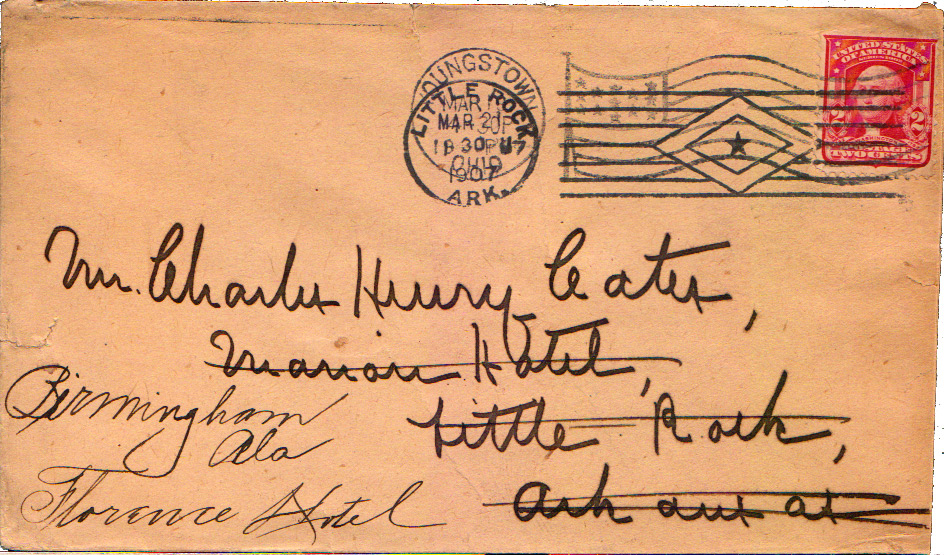 YOUNGSTOWN
MAR
30P
OHIO
1907
LITTLE ROCK
MAR 21
30 PM
ARK.
UNITED STATES
OF AMERICA
2 2
POSTAGE
TWO CENTS
Mr. Charles Henry Cates,
Marion Hotel,
Little Rock,
Arkansas
Birmingham
Ala
Florence Hotel